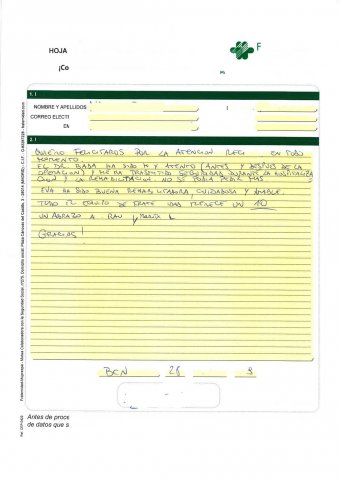 HOJA
¡Co
F
1. I
NOMBRE Y APELLIDOS
CORREO ELECTI
EN
2. I
QUIERO FELICITAROS POR LA ATENCION RECI EN TODO
MOMENTO.
EL DR. BADA HA SIDO M ATENTO (ANTES Y DESPUES DE LA
OPERACION) Y ME HA TRANSMITIDO SEGURIDAD DURANTE LA HOSPITALIZA
CION Y LA REHABILITACION. NO SE PODIA PEDIR MAS
EVA HA SIDO BUENA REHABILITADORA, CUIDADOSA Y AMABLE.
TODO EL EQUIPO DE FRATE MERECE UN 10
UN ABRAZO A Y MARTA
GRACIAS!
BCN 28 9
Antes de proce
de datos que s